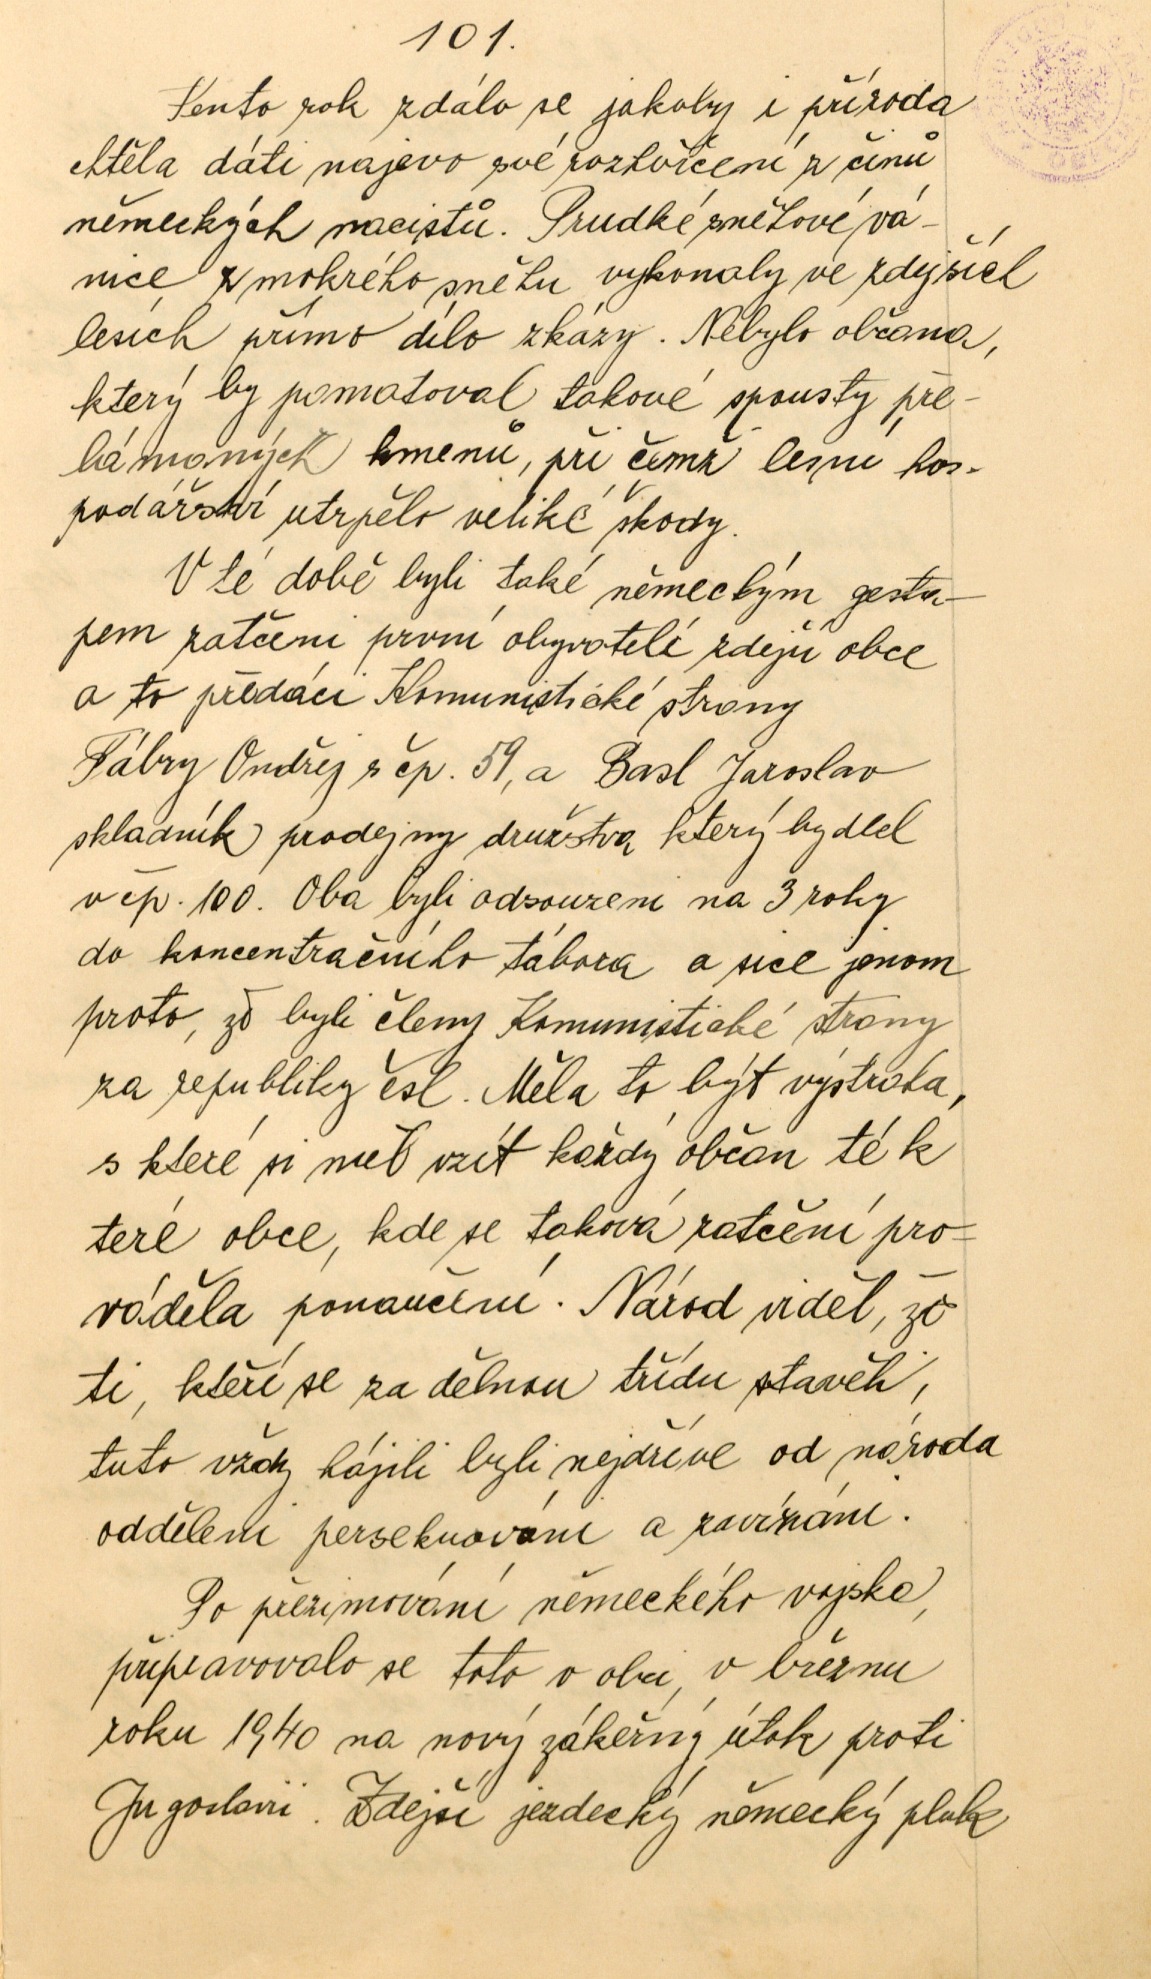 101.
Tento rok zdálo se jakoby i příroda
chtěla dáti najevo své roztvřčení z činů
německých nacistů. Prudké sněhové vá-
nice z mokrého sněhu vykonaly ve zdejších
lesích přímo dílo zkázy. Nebylo občana,
který by pamatoval takové spousty pře-
lámaných kmenů, při čemž lesní hos-
podářství utrpělo veliké škody.
V té době byli také německým gesta-
pem zatčeni první obyvatelé zdejší obce
a to předáci Komunistické strany
Fábry Ondřej s čp. 59, a Basl Jaroslav
skladník prodejny družstva který bydlel
v čp. 100. Oba byli odsouzeni na 3 roky
do koncentračního tábora a sice jenom
proto, že byli členy Komunistické strany
za republiky čsl. Měla to být výstraha,
s které si měl vzít každý občan té k
teré obce, kde se taková zatčení pro-
váděla ponaučení. Národ viděl, že
ti, kteří se za dělnou třídu stavěli,
tuto vždy hájili byli nejdříve od národa
odděleni persekuováni a zavíráni.
Po přezimování německého vojska,
připravovalo se toto v obci, v březnu
roku 1940 na nový zákeřný útok proti
Jugoslavii. Zdejší jezdecký německý pluk